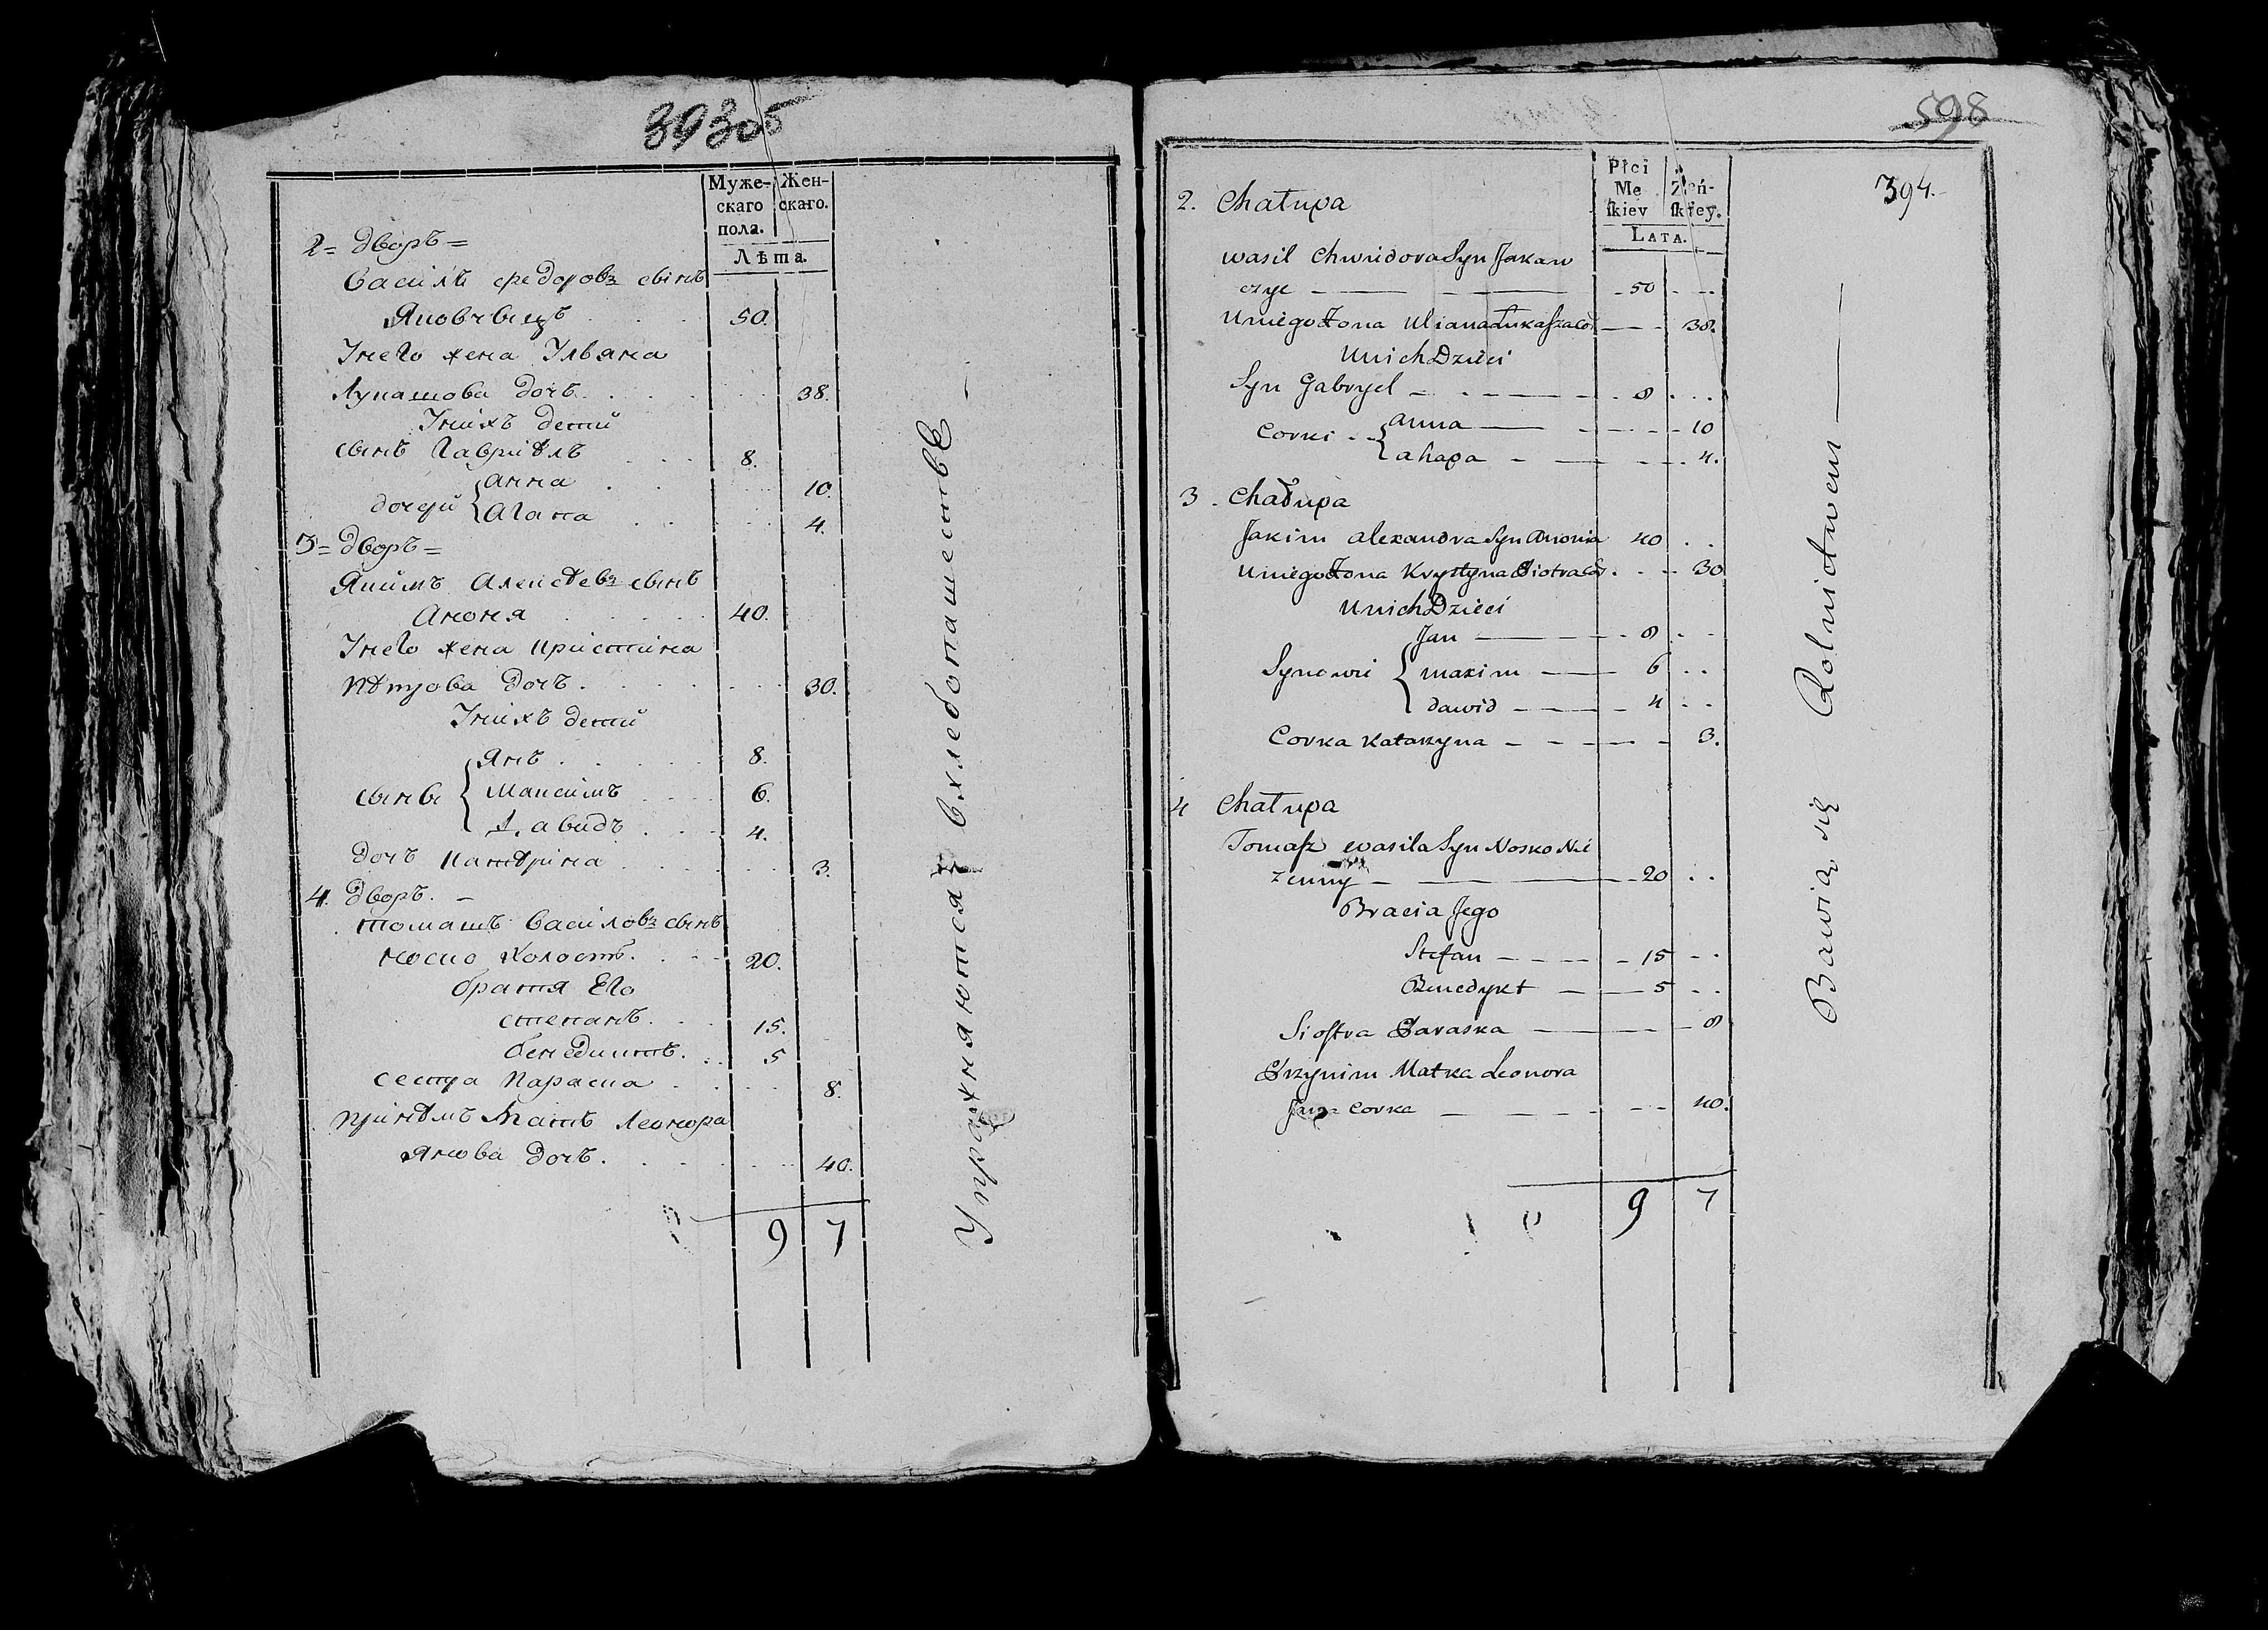 393об
Муже-
скаго
пола.
Жен-
скаго.
Лѣта.
2= дворъ=
Василь федоровъ сынъ
Яковчыцъ 50.
Унего жена Ульяна
Лукашова дочь 38.
Унихъ дети
сынъ Гавриѣлъ 8.
дочери { Анна 10.
Агапа 4.
3= дворъ=
Якимъ Алексѣевъ сынъ
Аноня 40.
Унего жена Кристина
Пѣтрова дочь 30.
Унихъ дети
Янъ 8.
сыны { Максимъ 6.
Давидъ 4.
дочъ Катѣрина 3.
4. дворъ. —
Томашъ Василовъ сынъ
Носко холостъ. 20.
братя Его
степанъ. 15.
бенедиктъ. 5
сестра Параска 8.
принѣмъ Мать Леонора
Янова дочь. 40.
9 7
Упражняются вхлебопашестве —
598
394.
Płci
Mę
skiey
Żeń-
skiey.
LATA.
2. Chałupa
wasil Chwiidora Syn Jakaw
czyc 50
Uniego Żona Uliana Łukasza Co 38.
Unich Dzieci
Syn Gabryel 8
Corki { anna 10
ahapa 4.
3. Chałupa
Jakim alexandra Syn Anonia 40
Uniego Żona Krystyna Piotra Co 30
Unich Dzieci
Jan 8
Synowie { maxim 6
dawid 4
Corka Katarzyna 3.
4 Chałupa
Tomasz wasila Syn Nosko Nie
zenny 20
Bracia Jego
Stefan 15
Benedykt 5
Siostra Paraska 8
Przynim Matka Leonora
Jana Corka 40.
9 7
Bawią się Rolnictwem —